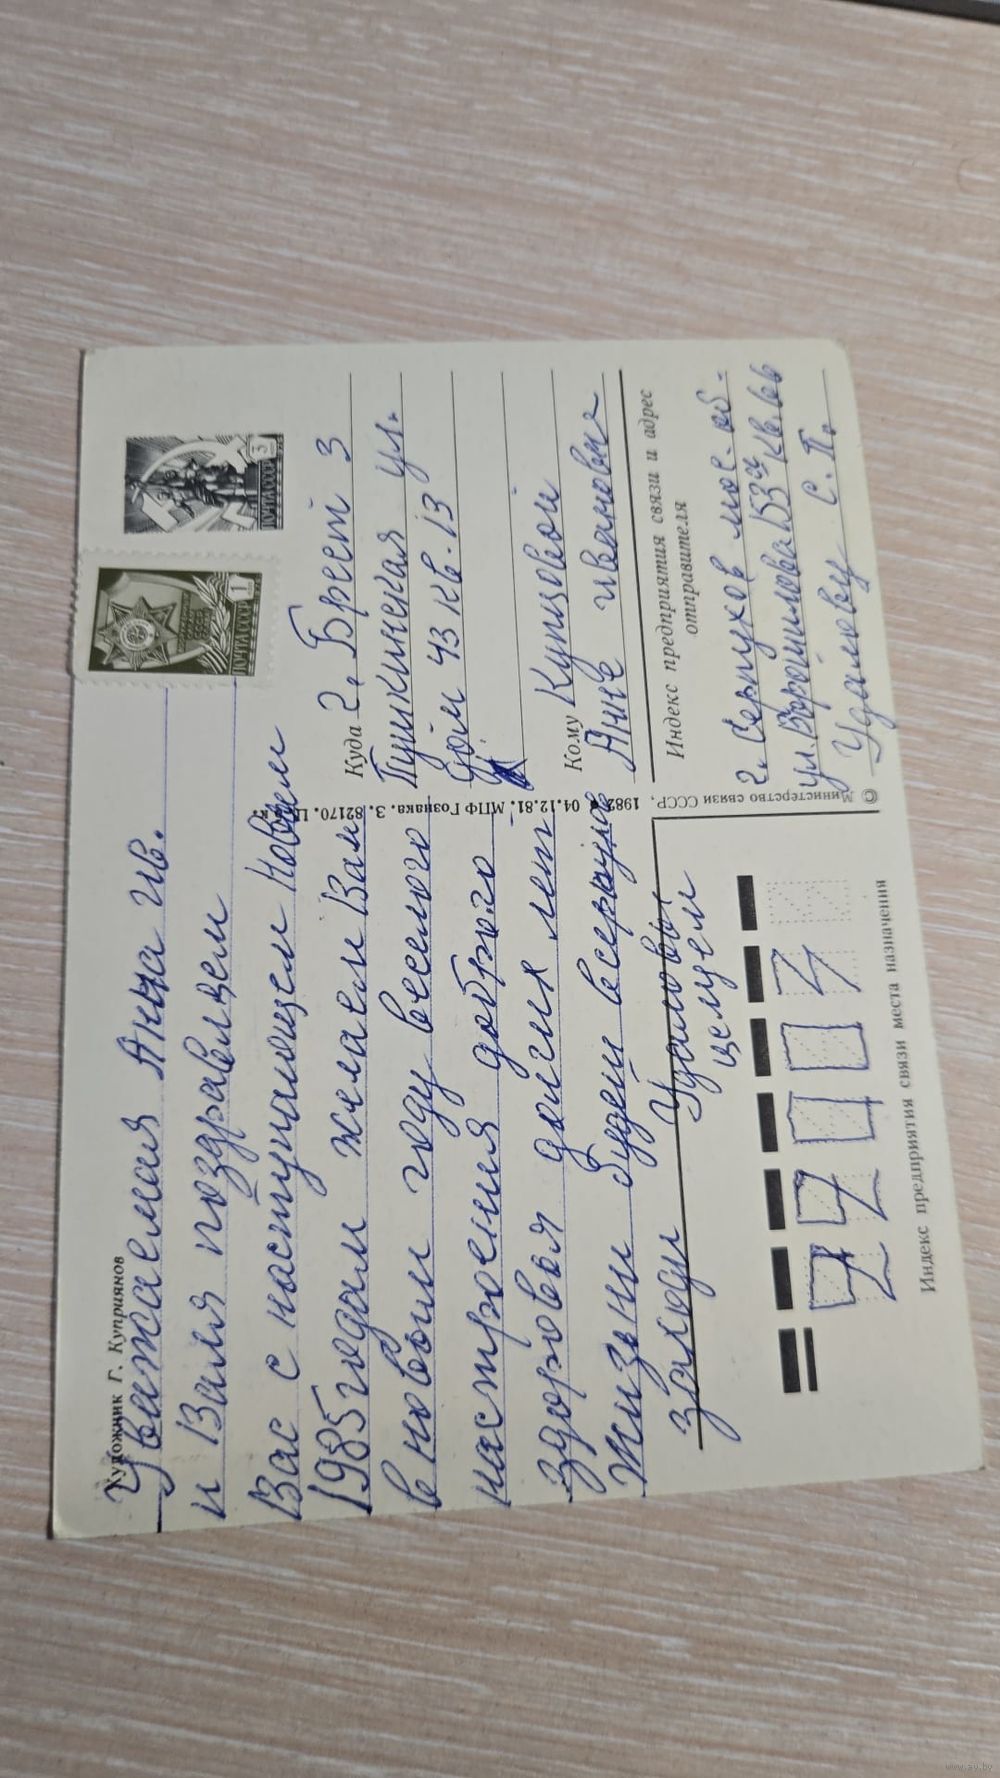 Художник Г. Куприянов
Уважаемая Анна Ив.
и Валя поздравляем
Вас с наступающем Новым
1985 годом желаем Вам
в новом году веселого
настроения доброго
здоровья долгих лет
жизни будей в серпухове
заходи Удаловы
целуем
ПОЧТА СССР 1
ПОЧТА СССР 3
Куда г. Брест 3
Пушкинская ул.
дом 43 кв. 13
Кому Купцовой
Анне ивановне
Индекс предприятия связи и адрес
отправителя
г. Серпухов мос. об.
ул. Ворошилова 153 кв. 66
Удаловы С. П.
© Министерство связи СССР. 1982. 04.12.81. МПФ Гознака. З. 82170.
Индекс предприятия связи места назначения
www.ay.by